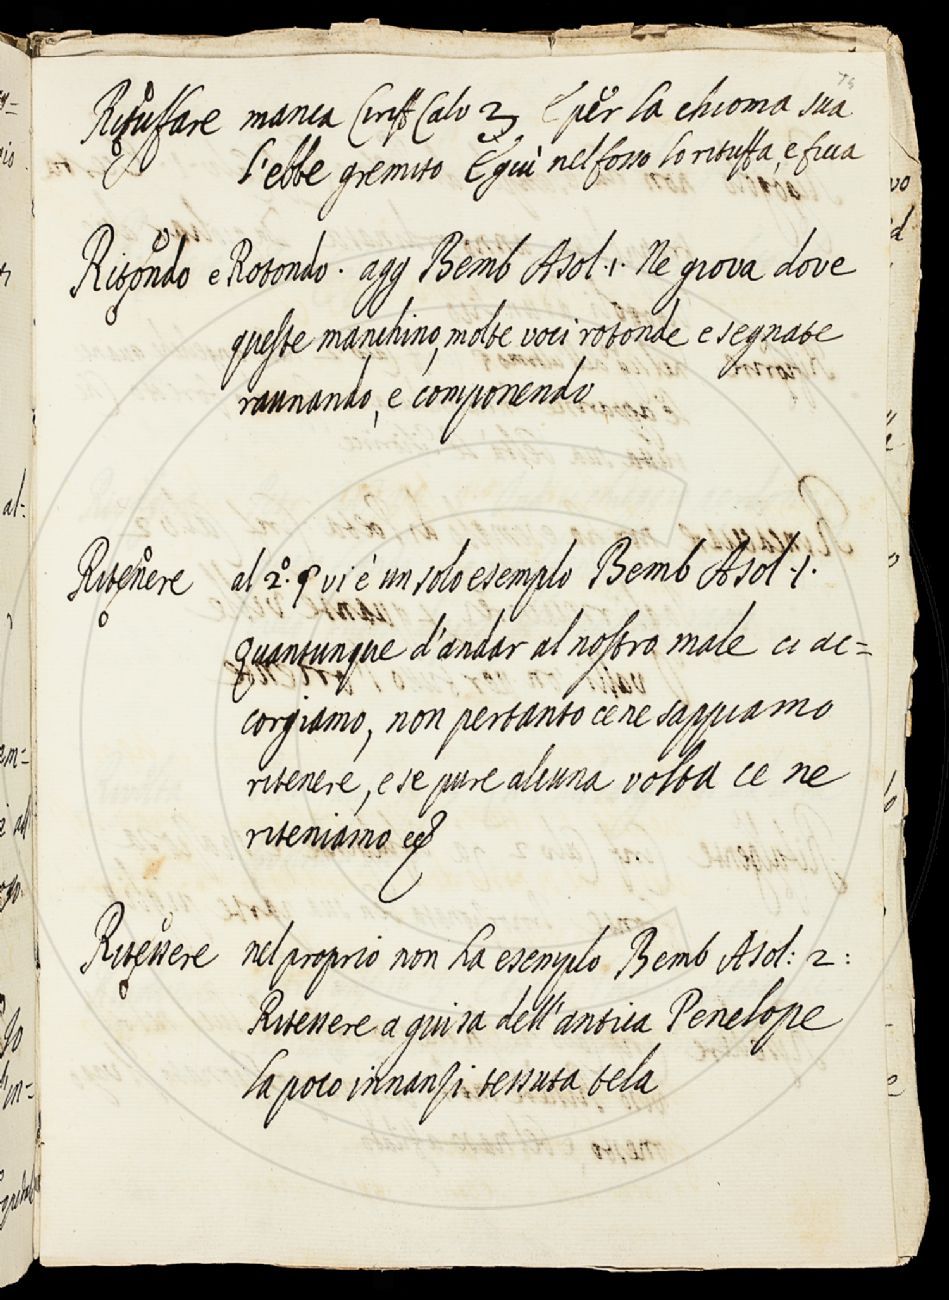 Rituffare manca Ciriff Calv 2 E per la chioma sua
l'ebbe gremito E giù nel fosso lo rituffa, e ficca
Ritondo e Rotondo. agg Bemb Asol. 1. Ne giova dove
queste manchino, molte voci rotonde e segnate
raunando, e componendo
Ritenere al 2º. § vi è un solo esemplo Bemb Asol. 1.
quantunque d'andar al nostro male ci ac=
corgiamo, non pertanto ce ne sappiamo
ritenere, e se pure alcuna volta ce ne
riteniamo ec
Ritessere nel proprio non ha esemplo Bemb Asol: 2:
Ritessere a guisa dell'antica Penelope
la poco innanzi tessuta tela